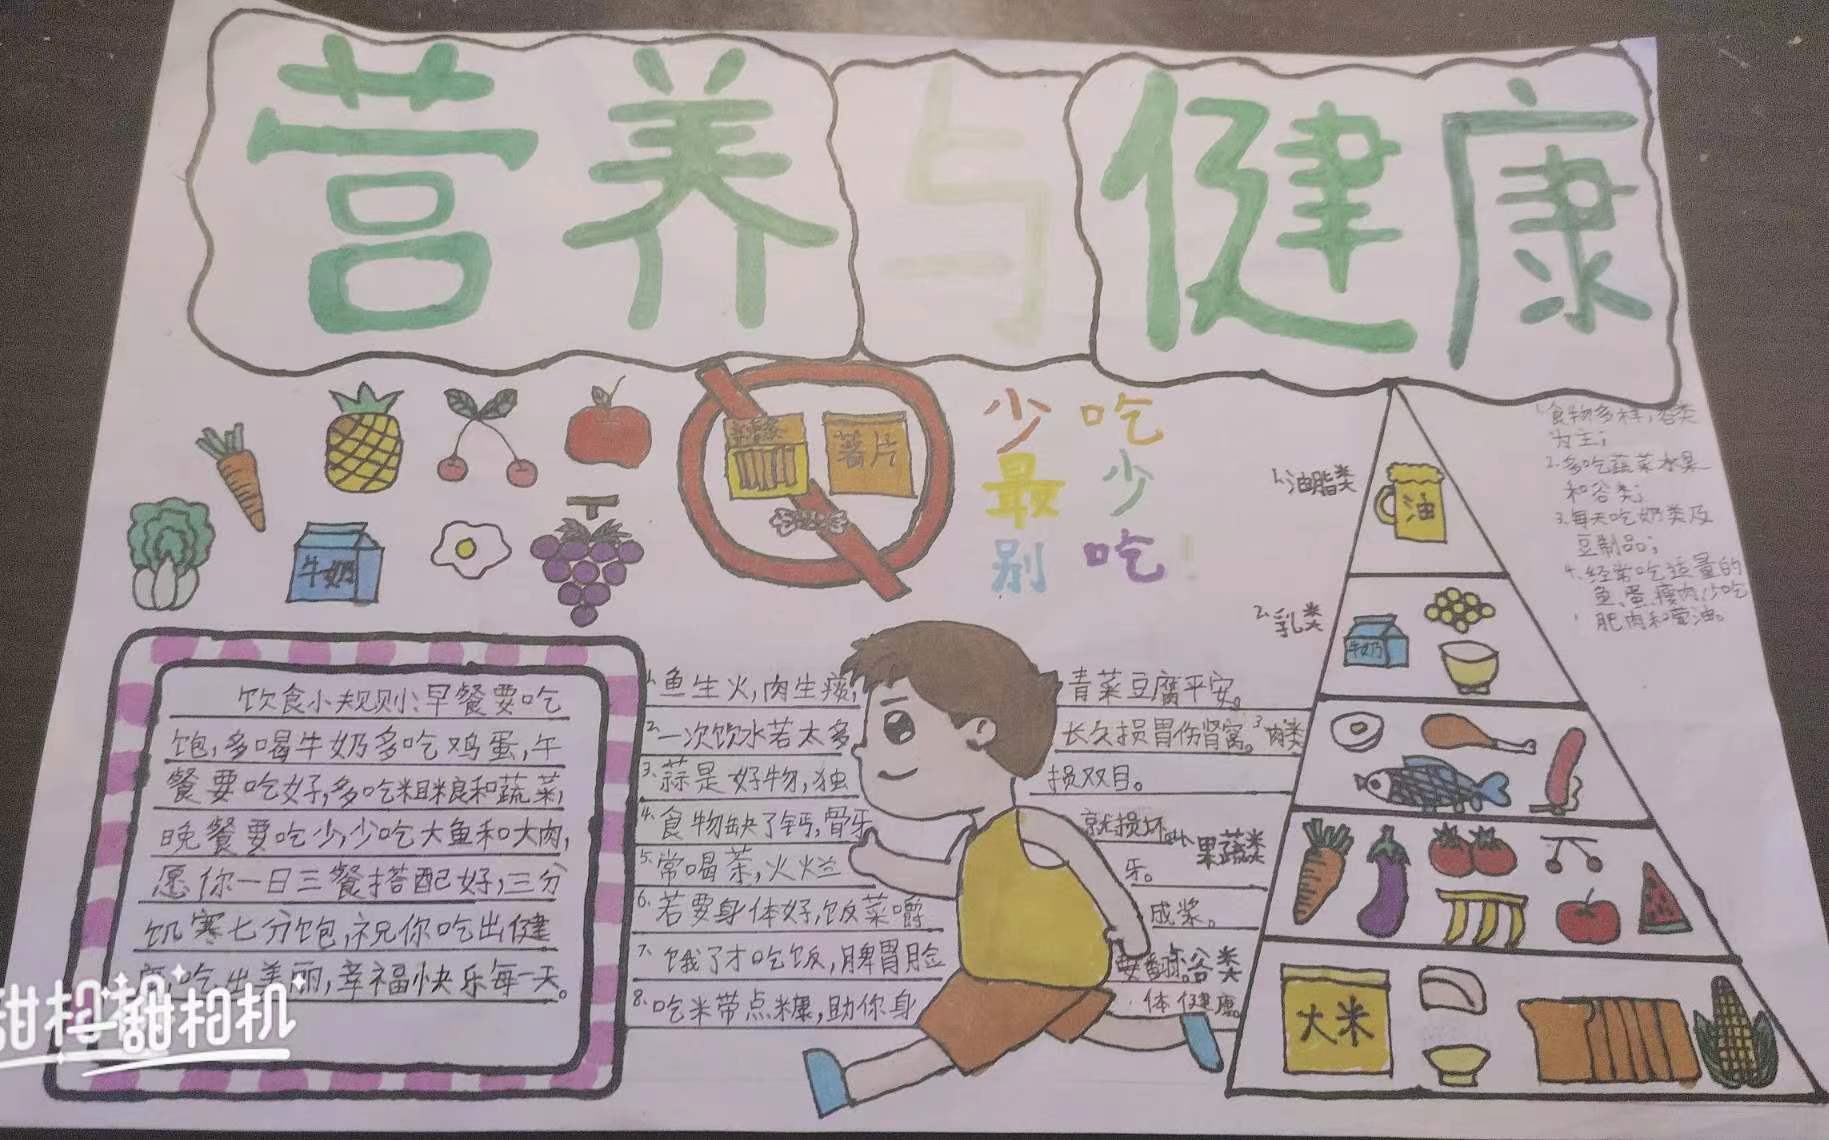 营养与健康
牛奶
薯片
少吃
最少
别吃!
饮食小规则:早餐要吃
饱,多喝牛奶多吃鸡蛋,午
餐要吃好,多吃粗粮和蔬菜,
晚餐要吃少,少吃大鱼和大肉,
愿你一日三餐搭配好,三分
饥寒七分饱,祝你吃出健
吃出美丽,幸福快乐每一天。
1.鱼生火,肉生痰, 青菜豆腐平安。
2.一次饮水若太多 长久损胃伤肾窝。
3.蒜是好物,独 损双目。
4.食物缺了钙,骨牙 就损坏
5.常喝茶,火烂 牙。
6.若要身体好,饭菜嚼 成浆。
7.饿了才吃饭,脾胃脸 要翻
8.吃米带点糠,助你身 体健康。
1.油脂类
油
2.乳类
牛奶
3.肉类
果蔬类
谷类
大米
1.食物多样,谷类
为主;
2.多吃蔬菜水果
和谷类;
3.每天吃奶类及
豆制品;
4.经常吃适量的
鱼、蛋、瘦肉,少吃
肥肉和荤油。
甜相机